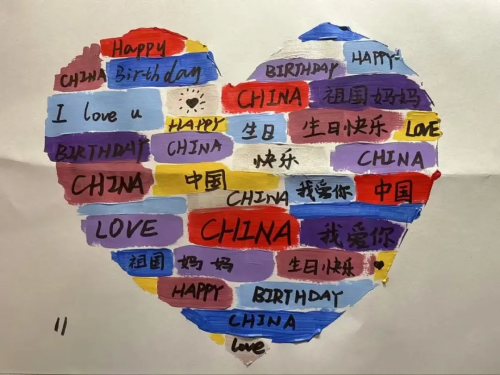 Happy
CHINA Birthday BIRTHDAY HAPPY
I love u CHINA 祖国妈妈
HAPPY 生日 生日快乐 LOVE
BIRTHDAY CHINA 快乐 CHINA
CHINA 中国 CHINA 我爱你 中国
LOVE CHINA 我爱你
祖国 妈妈 生日快乐
HAPPY BIRTHDAY
CHINA
love
11